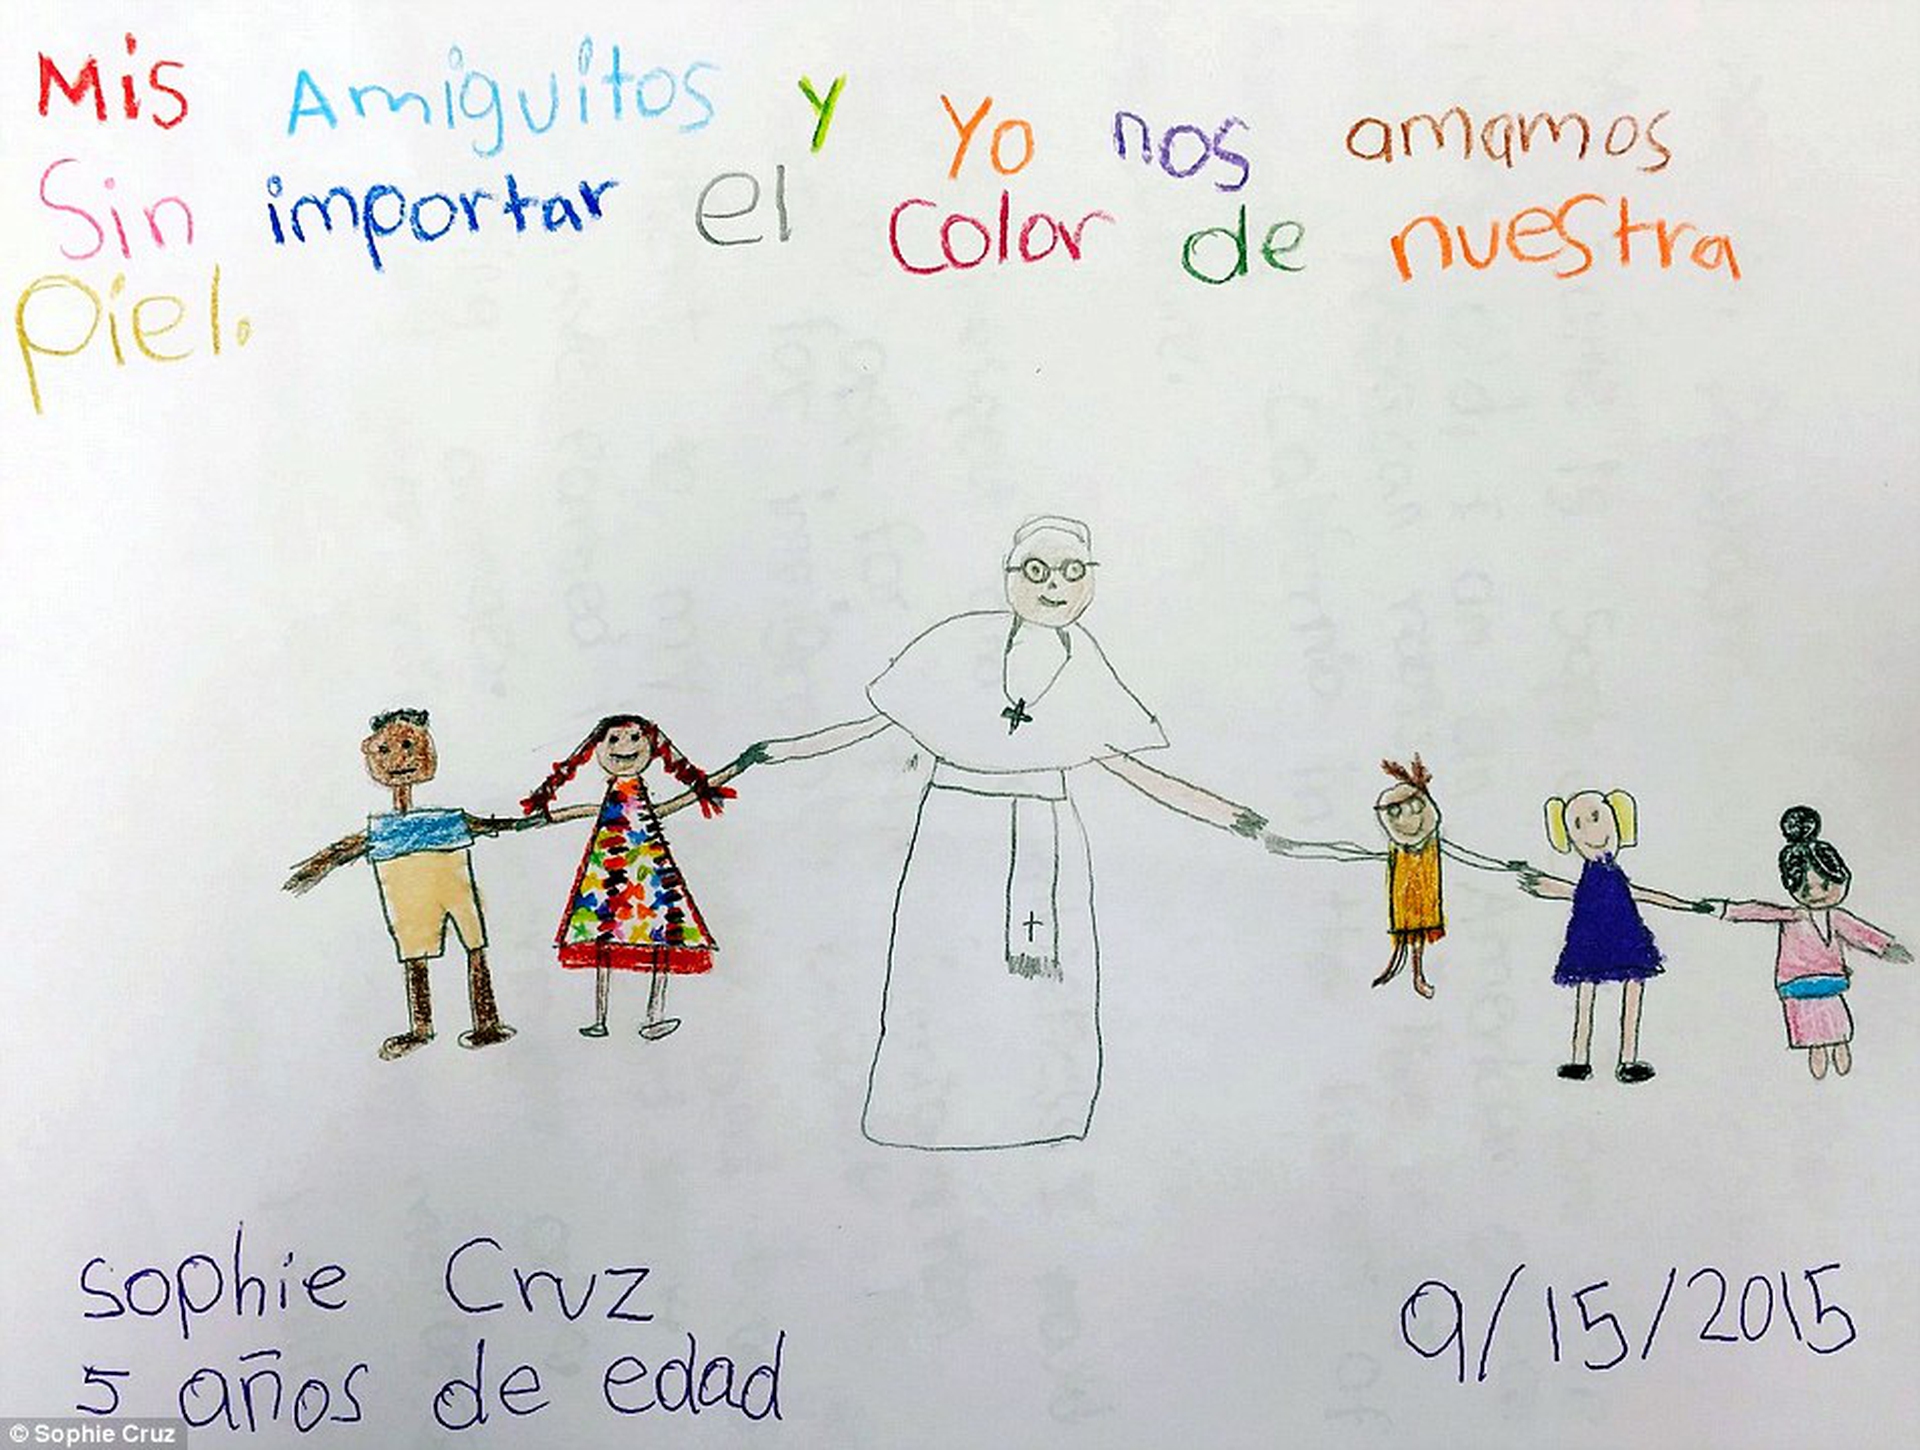 Mis Amiguitos y Yo nos amamos
Sin importar el Color de nuestra
piel.
Sophie Cruz
5 años de edad
9/15/2015
© Sophie Cruz